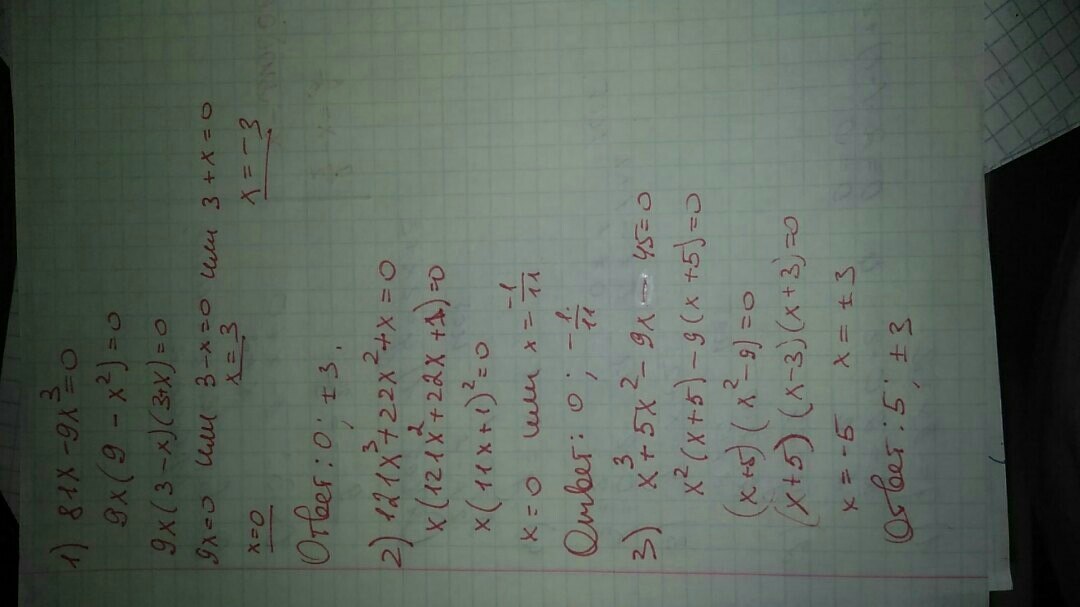 1) 81x - 9x³ = 0
9x(9 - x²) = 0
9x(3 - x)(3 + x) = 0
9x = 0 или 3 - x = 0 или 3 + x = 0
x = 0 x = 3 x = -3
Ответ: 0; ± 3.
2) 121x³ + 22x² + x = 0
x(121x² + 22x + 1) = 0
x(11x + 1)² = 0
x = 0 или x = -1/11
Ответ: 0; -1/11
3) x³ + 5x² - 9x - 45 = 0
x²(x + 5) - 9(x + 5) = 0
(x + 5)(x² - 9) = 0
(x + 5)(x - 3)(x + 3) = 0
x = -5 x = ± 3
Ответ: 5; ± 3